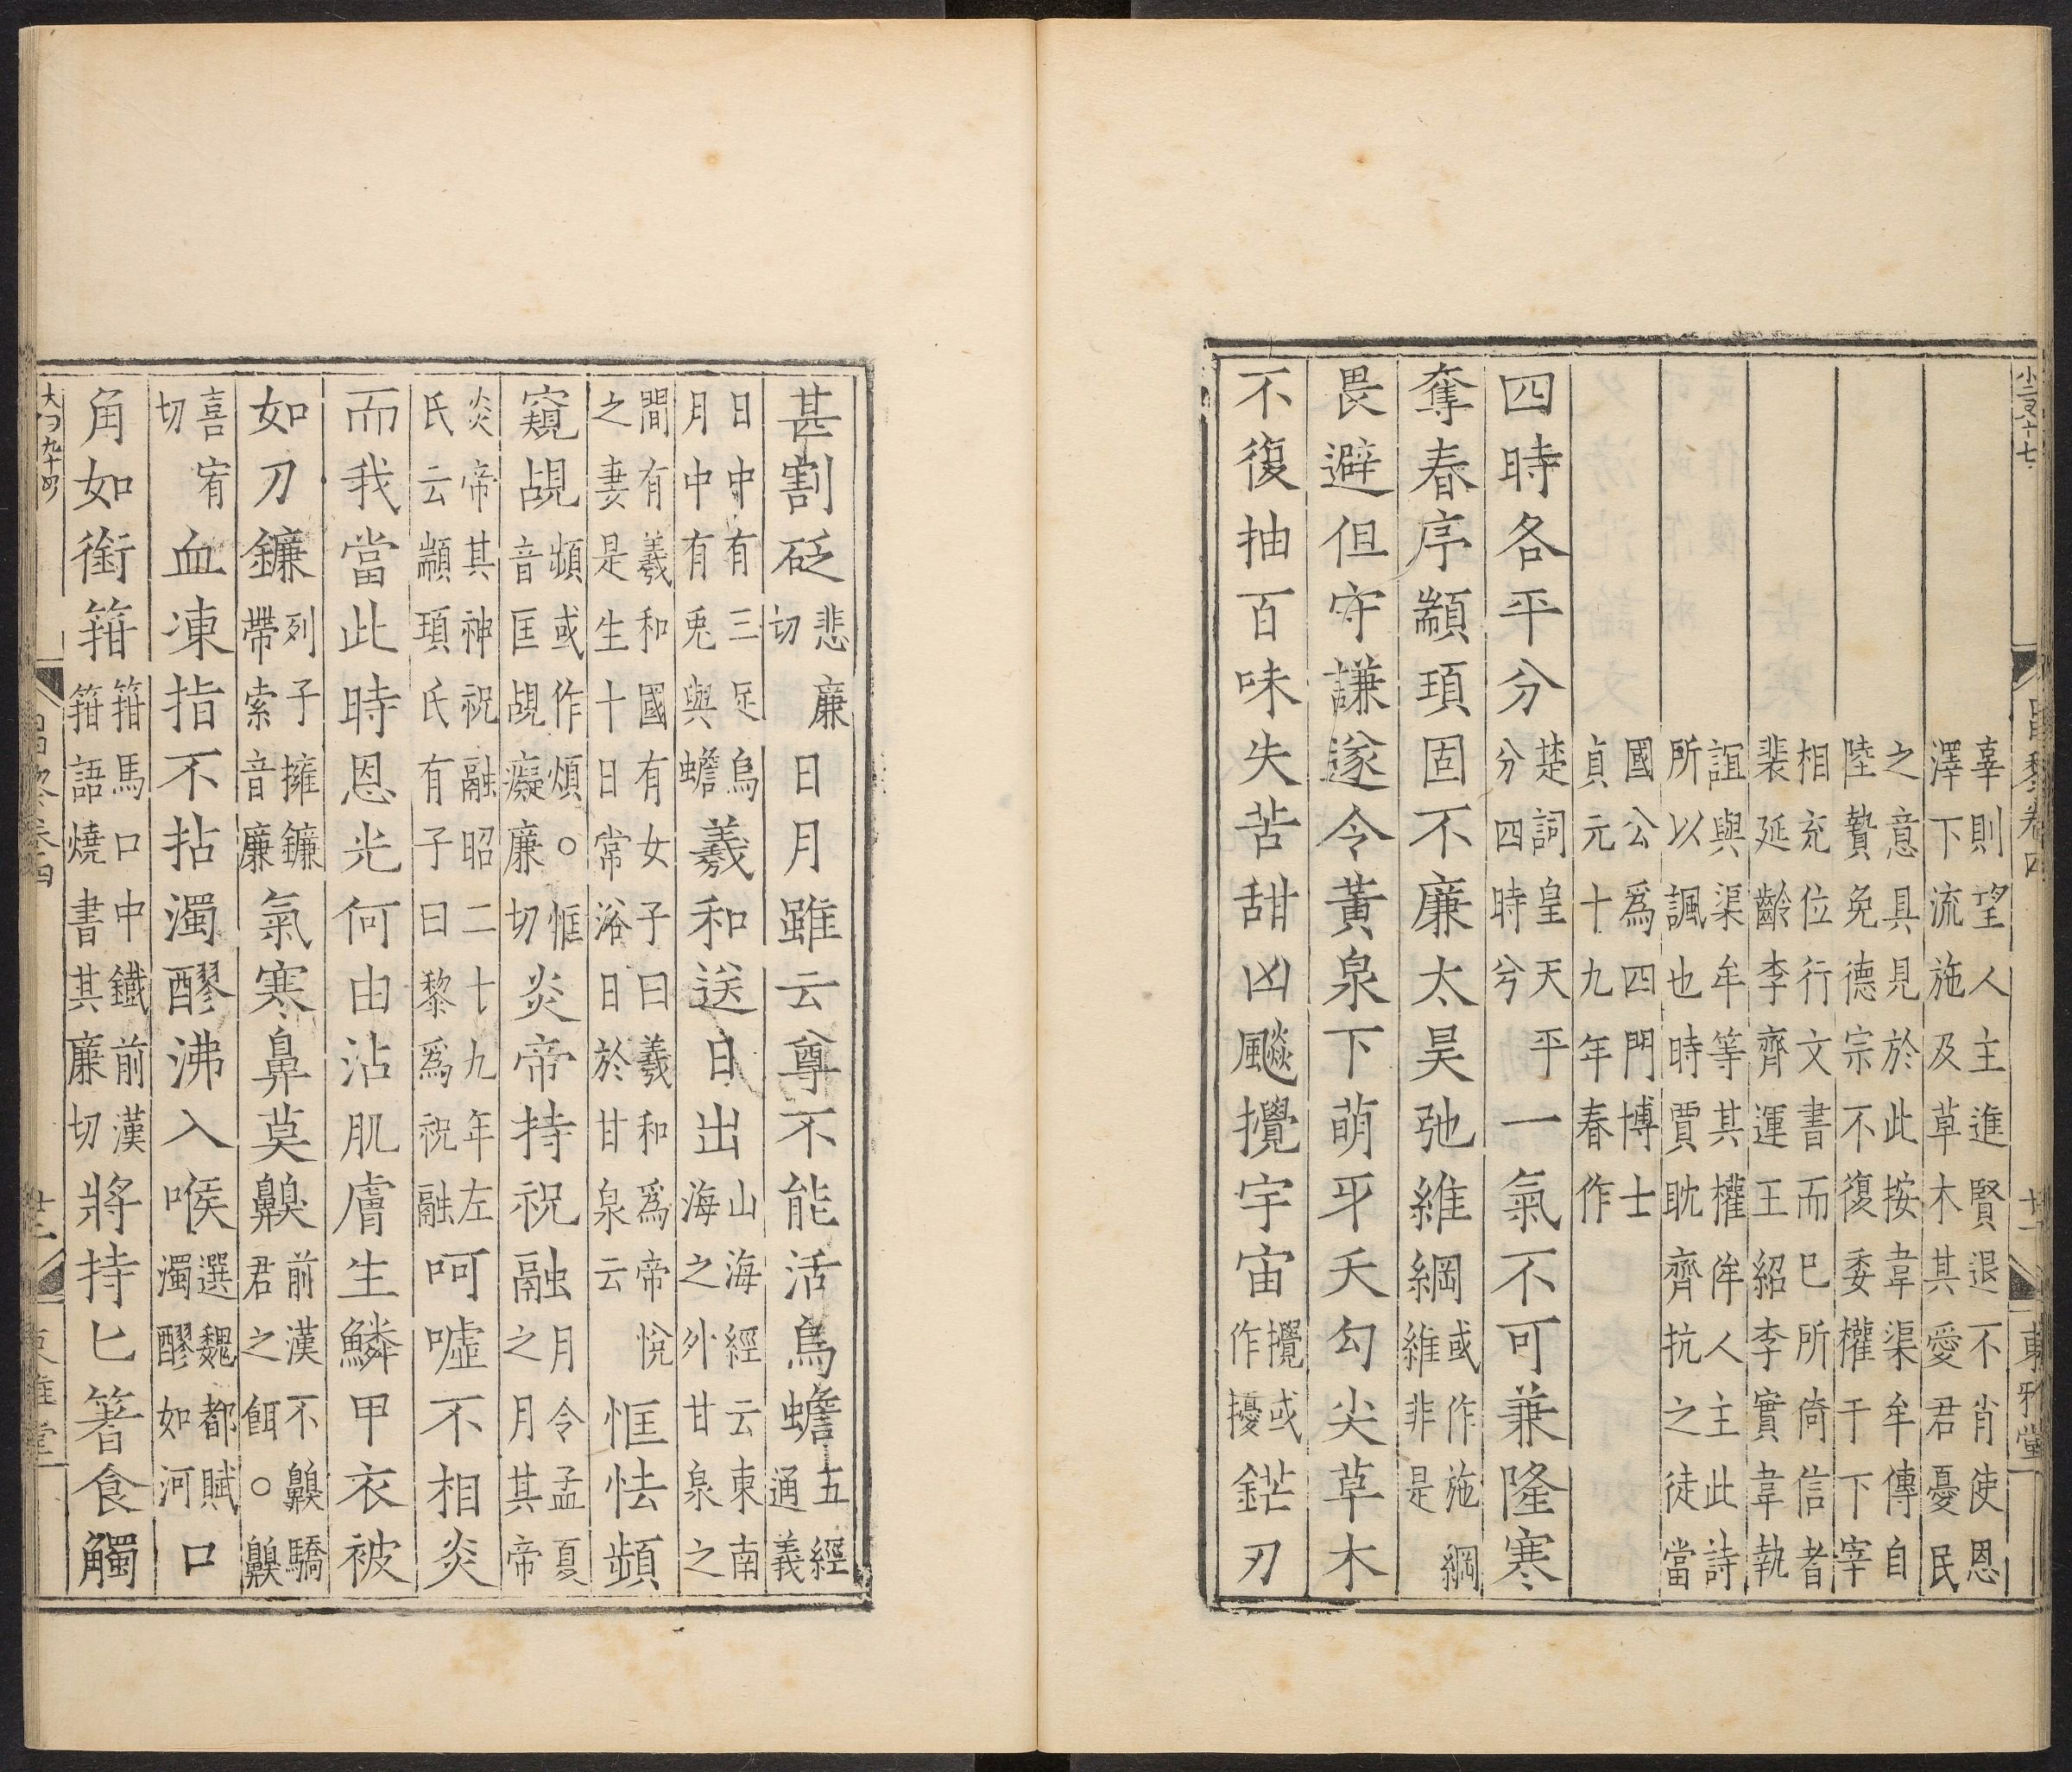 昌黎卷四 廿一 東雅堂
辜則望人主進賢退不肖使恩
澤下流施及草木其愛君憂民
之意具見於此按韋渠牟傳自
陸贄免德宗不復委權于下宰
相充位行文書而已所倚信者
裴延齡李齊運王紹李實韋執
誼與渠牟等其權侔人主此詩
所以諷也時賈耽齊抗之徒當
國公爲四門博士
貞元十九年春作
四時各平分楚詞皇天平分四時兮一氣不可兼隆寒
奪春序顓頊固不廉太昊弛維綱或作施綱維非是
畏避但守謙遂令黃泉下萌牙夭勾尖草木
不復抽百味失苦甜凶飈攪宇宙攪或作擾鋩刃
甚割砭悲廉切日月雖云尊不能活烏蟾五經通義
日中有三足烏月中有兎與蟾羲和送日出山海經云東南海之外甘泉之
間有羲和國有女子曰羲和爲帝悅之妻是生十日常浴日於甘泉云恇怯頻
窺覘頻或作煩○恇音匡覘癡廉切炎帝持祝融月令孟夏之月其帝
炎帝其神祝融昭二十九年左氏云顓頊氏有子曰黎爲祝融呵噓不相炎
而我當此時恩光何由沾肌膚生鱗甲衣被
如刀鐮列子擁鐮帶索音廉氣寒鼻莫齅前漢不齅驕君之餌○齅
喜宥切血凍指不拈濁醪沸入喉選魏都賦濁醪如河口
角如銜箝箝馬口中鐵前漢箝語燒書其廉切將持匕箸食觸
昌黎卷四 廿二 東雅堂